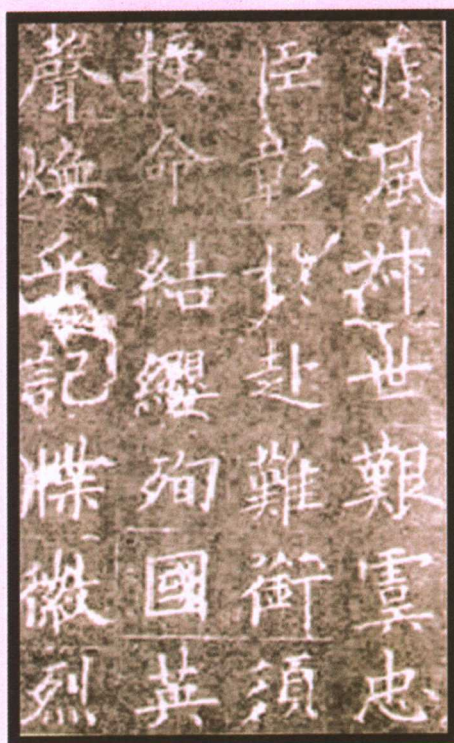 疾風世艱虞忠
臣彰扵赴難銜須
授命結纓殉國英
聲煥乎記牒徽烈